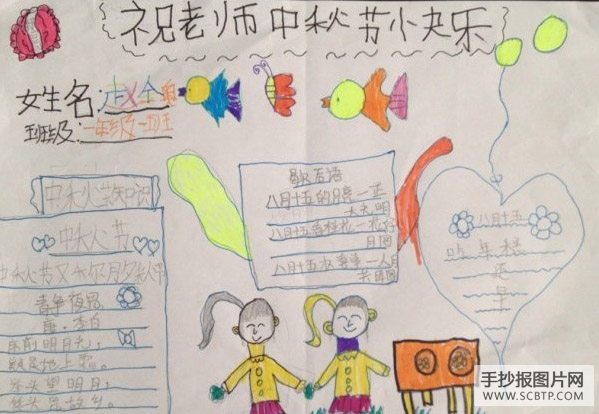 祝老师中秋节小快乐
女生名:赵全
班级:一年级一班王
中秋知识
中秋节
静夜思
唐·李白
床前明月光,
疑是地上霜。
举头望明月,
低头思故乡。
歇后语
八月十五的月亮一正
大光明
八月十五
月圆
八月十五 一人月
共团圆
八月十五
吃年糕
手抄报图片网
WWW.SCBTP.COM